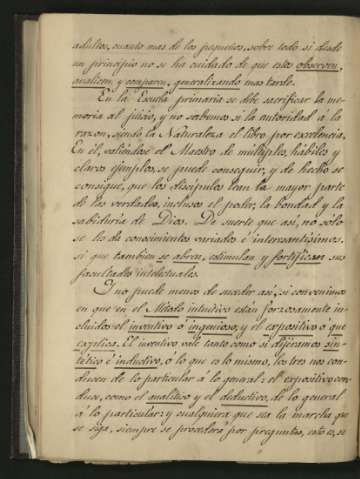 adultos, cuanto mas de los pequeños, sobre todo si desde
un principio no se ha cuidado de que estos observen,
analicen y comparen, generalizando mas tarde.
En la Escuela primaria se debe sacrificar la me-
moria al juicio, y no sabemos si la autoridad á la
razon, siendo la Naturaleza el libro por excelencia.
En él, valiéndose el Maestro de múltiples, hábiles y
claros ejemplos, se puede conseguir, y de hecho se
consigue, que los discípulos lean la mayor parte
de las verdades, inclusos el poder, la bondad y la
sabiduría de Dios. De suerte que así, no sólo
se les da conocimientos variados é interesantísimos,
si que tambien se abren, estimulan y fortifican sus
facultades intelectuales.
Y no puede menos de suceder así, si convenimos
en que en el Método intuitivo están forzosamente in-
cluidos el inventivo ó ingenioso, y el expositivo ó que
explica. El inventivo vale tanto como si dijéramos sin-
tético é inductivo, ó lo que es lo mismo, los tres nos con-
ducen de lo particular á lo general: el expositivo con-
duce, como el analítico y el deductivo, de lo general
á lo particular: y cualquiera que sea la marcha que
se siga, siempre se procederá por preguntas, esto es, se